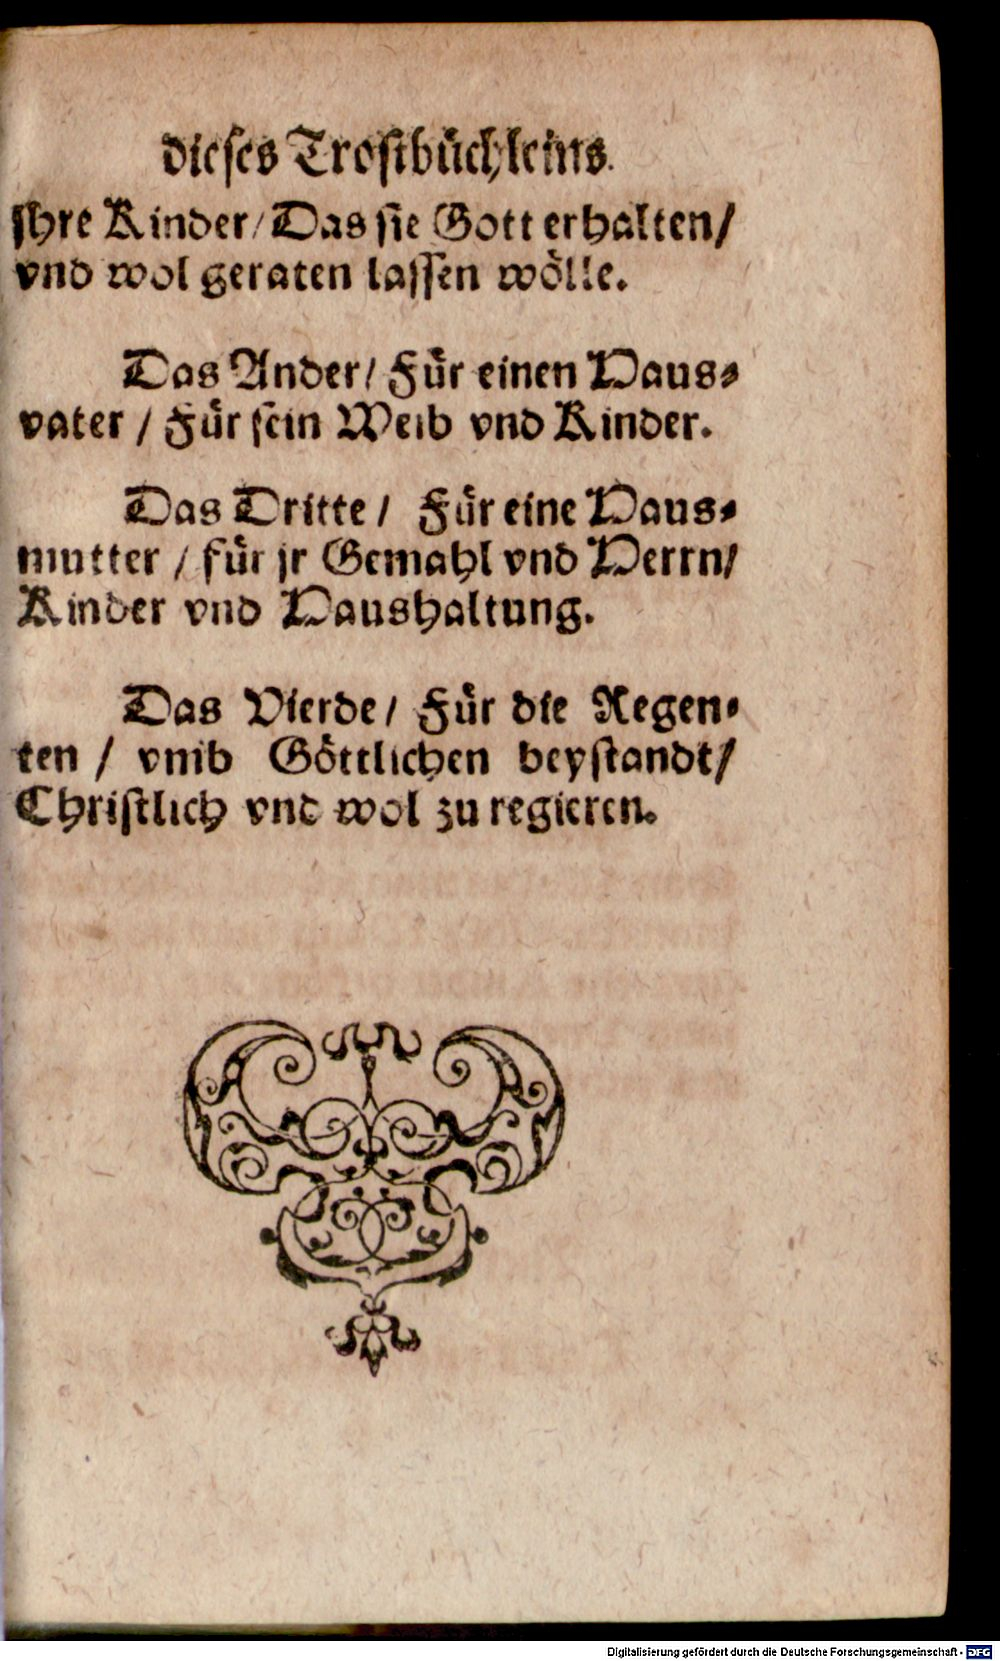 dieses Trostbüchleins.
jhre Kinder / Das sie Gott erhalten /
vnd wol geraten lassen wölle.
Das Ander / Für einen Haus⸗
vater / Für sein Weib vnd Kinder.
Das Dritte / Für eine Haus⸗
mutter / für jr Gemahl vnd Herrn /
Kinder vnd Haushaltung.
Das Vierde / Für die Regen⸗
ten / vmb Göttlichen beystandt /
Christlich vnd wol zu regieren.
Digitalisierung gefördert durch die Deutsche Forschungsgemeinschaft - DFG